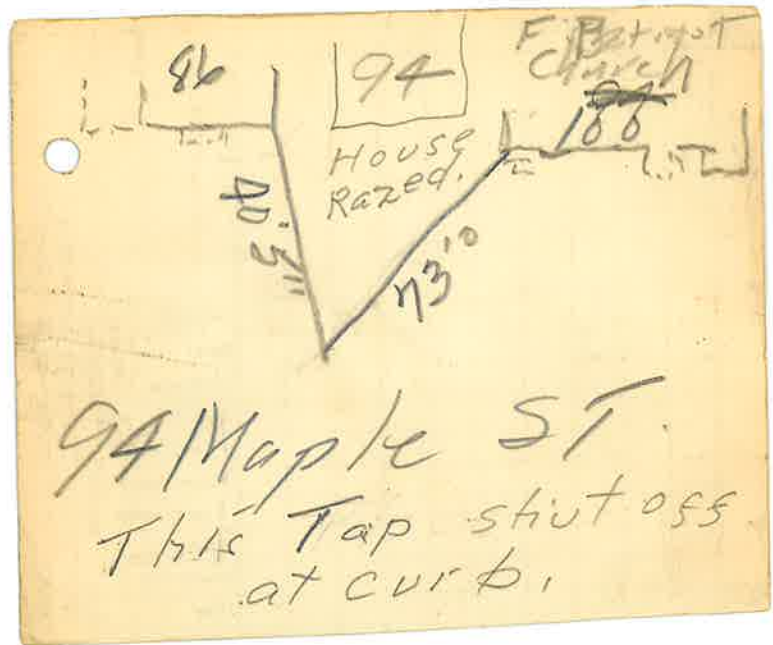 86
94
F. Baptist
Church
100
House
Razed.
40'5"
73'0
94 Maple ST.
This Tap shut off
at curb.